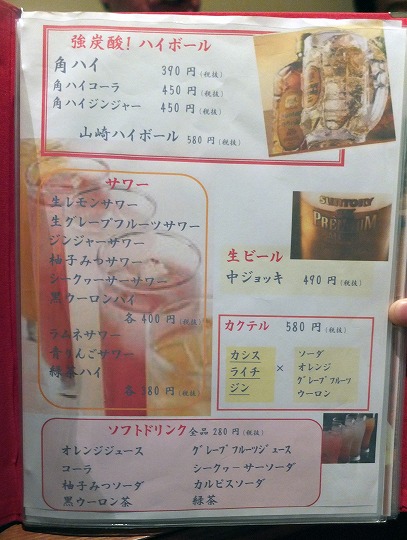 強炭酸！ハイボール
角ハイ 390円(税抜)
角ハイコーラ 450円(税抜)
角ハイジンジャー 450円(税抜)
山崎ハイボール 580円(税抜)
サワー
生レモンサワー
生グレープフルーツサワー
ジンジャーサワー
柚子みつサワー
シークヮーサーサワー
黒ウーロンハイ
各400円(税抜)
ラムネサワー
青りんごサワー
緑茶ハイ
各380円(税抜)
SUNTORY
PREMIUM
生ビール
中ジョッキ 490円(税抜)
カクテル 580円(税抜)
カシス
ライチ
ジン
×
ソーダ
オレンジ
グレープフルーツ
ウーロン
ソフトドリンク 全品280円(税抜)
オレンジジュース グレープフルーツジュース
コーラ シークヮーサーソーダ
柚子みつソーダ カルピスソーダ
黒ウーロン茶 緑茶